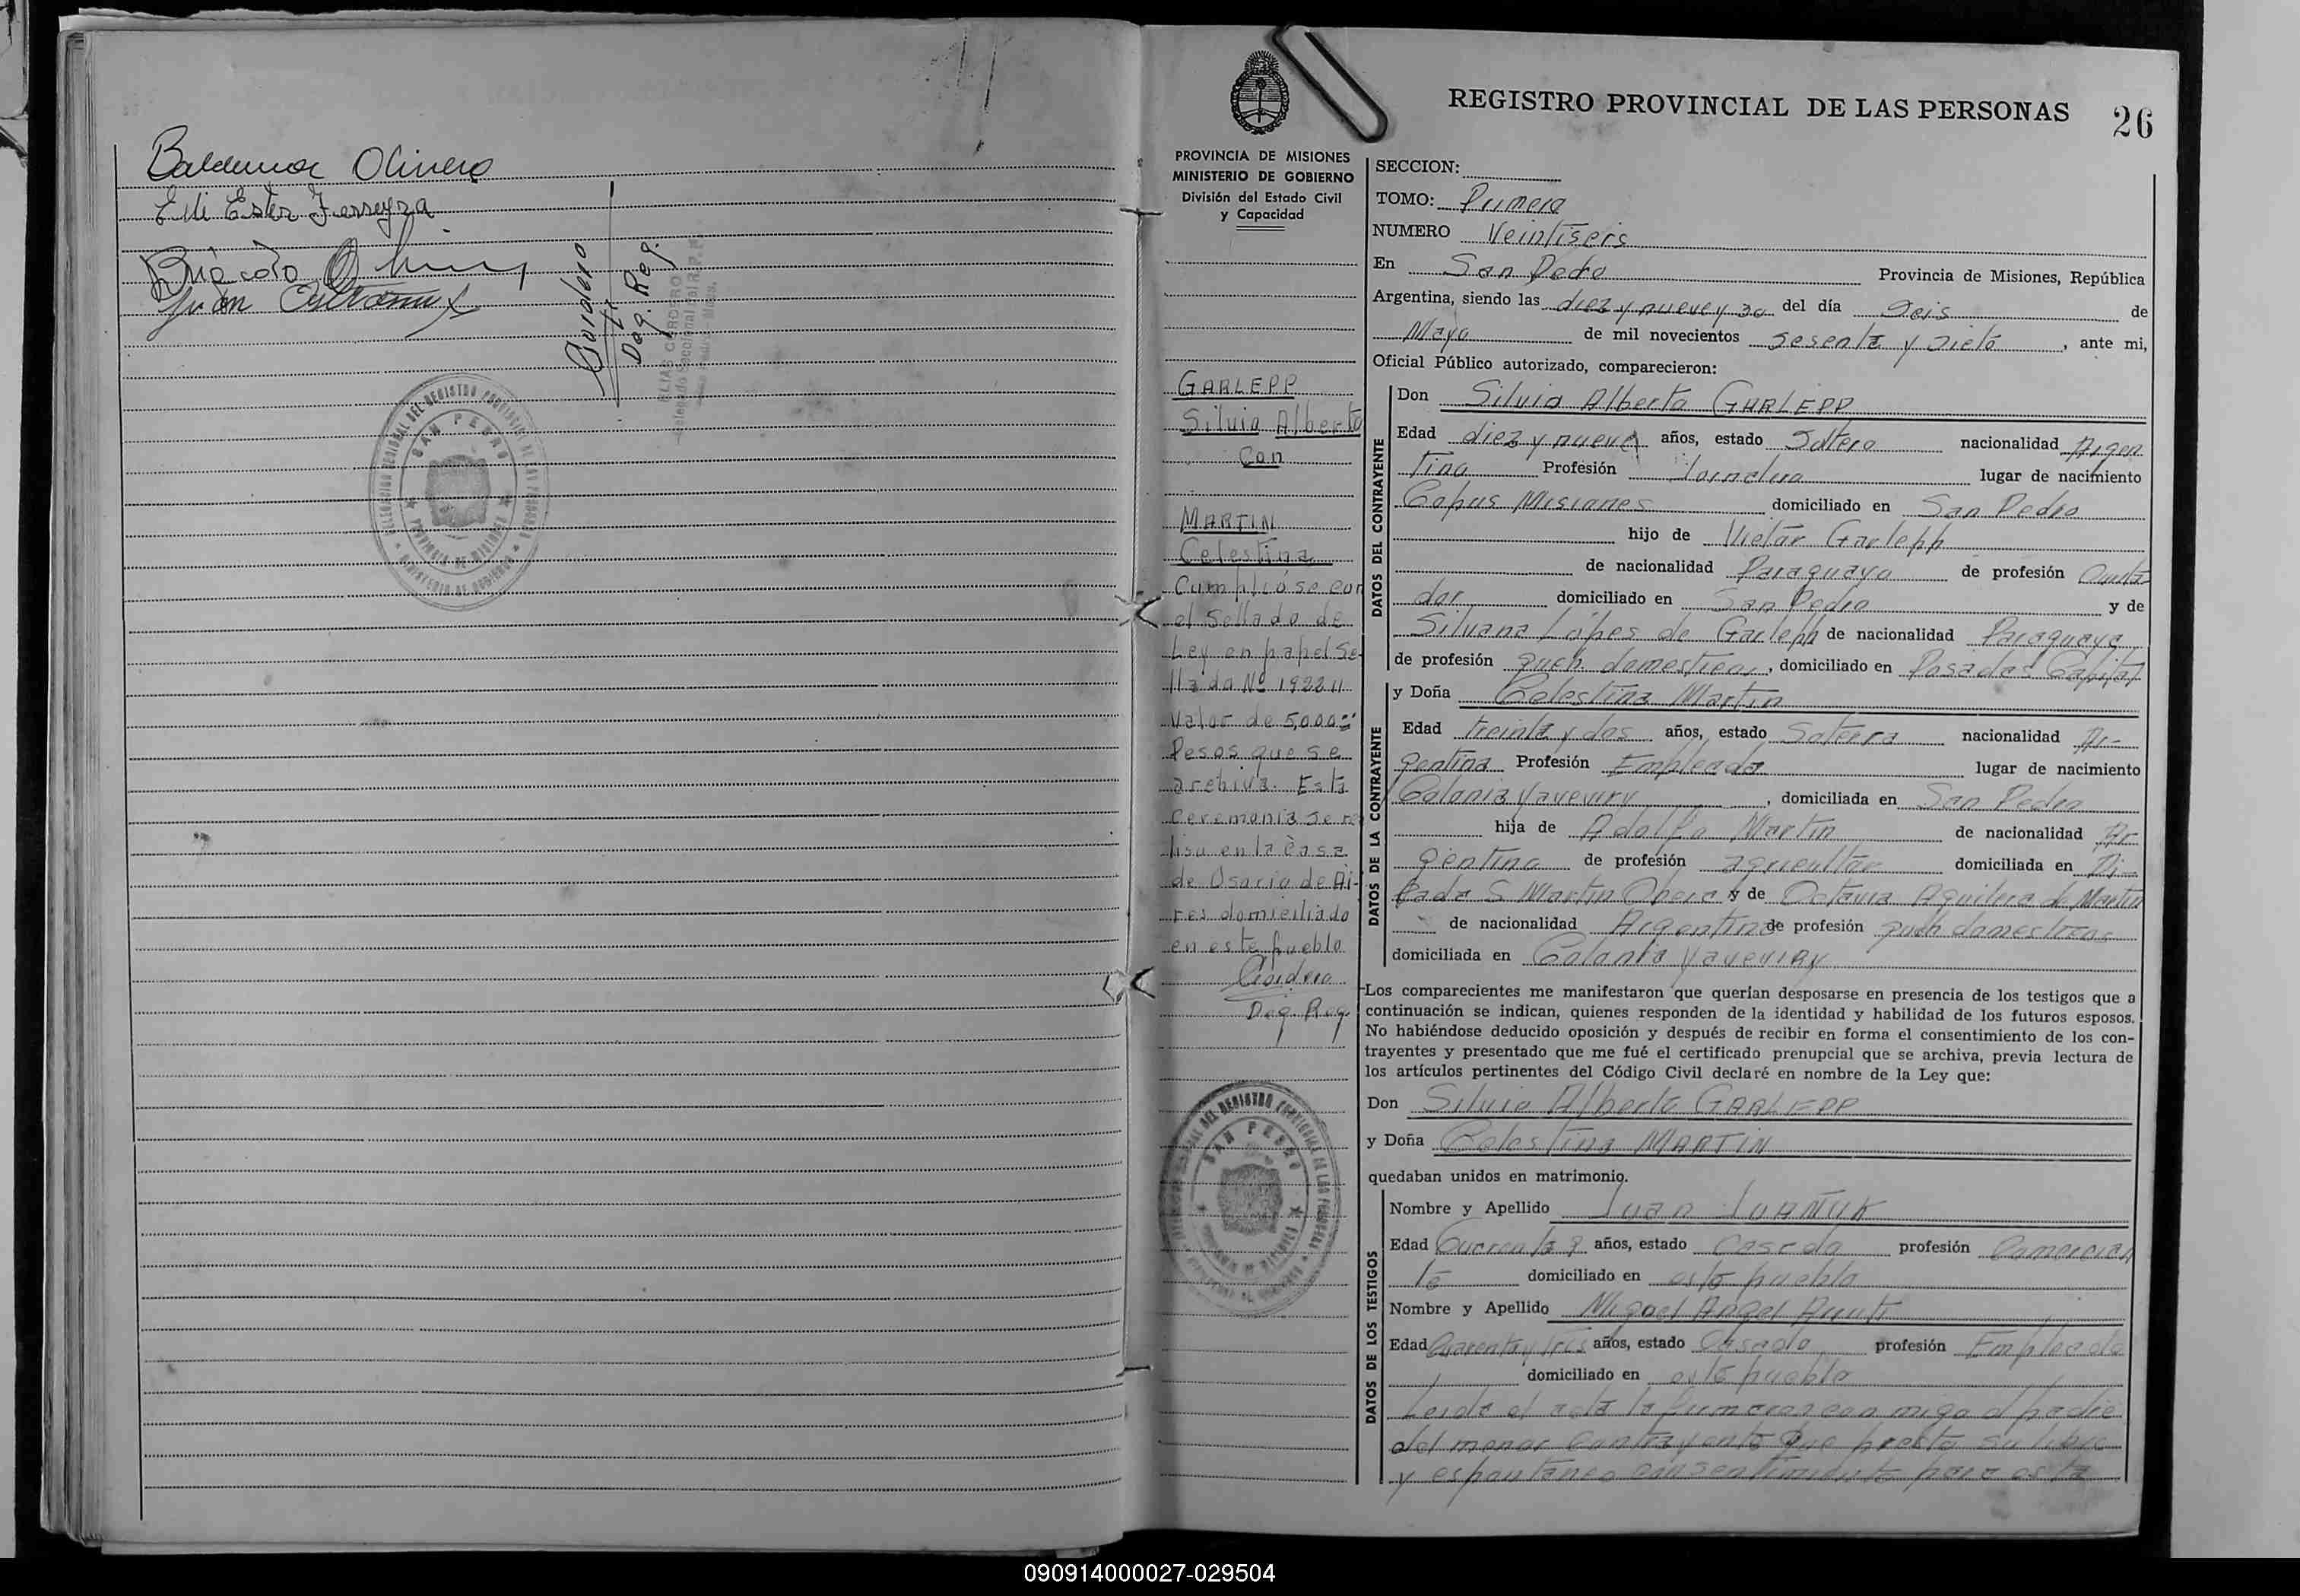 Baldemar Olivera
Edi Ester Ferreyra
Juan
Cordero
Deg. Reg.
ELIAS CORDERO
DELEGACION REGIONAL DEL REGISTRO PROVINCIAL DE LAS PERSONAS
SAN PEDRO
PROVINCIA DE MISIONES
MINISTERIO DE GOBIERNO
REGISTRO PROVINCIAL DE LAS PERSONAS 26
PROVINCIA DE MISIONES
MINISTERIO DE GOBIERNO
División del Estado Civil
y Capacidad
GARLEPP
Silvio Alberto
Con
MARTIN
Celestina
Cumplióse con
el Sellado de
Ley en papel Se-
llado Nº 192211
Valor de 5,000
Pesos que se
archiva. Esta
Ceremonia se re
lisu en la Casa
de Osorio de Ai-
res domiciliado
en este pueblo
Cordero
Deg. Reg.
SAN PEDRO
SECCION:
TOMO: Primero
NUMERO Veintiseis
En San Pedro Provincia de Misiones, República
Argentina, siendo las diez y nueve y 30 del día Seis de
Mayo de mil novecientos sesenta y siete, ante mi,
Oficial Público autorizado, comparecieron:
DATOS DEL CONTRAYENTE
Don Silvio Alberto GARLEPP
Edad diez y nueve años, estado Soltero nacionalidad Argen
tino Profesión Jornalero lugar de nacimiento
Corpus Misiones domiciliado en San Pedro
hijo de Victor Garlepp
de nacionalidad Paraguayo de profesión Conta-
dor domiciliado en San Pedro y de
Silvana Lópes de Garlepp de nacionalidad Paraguaya
de profesión queh. domesticos, domiciliado en Posadas Capital
DATOS DE LA CONTRAYENTE
y Doña Celestina Martin
Edad treinta y dos años, estado Soltera nacionalidad Ar-
gentina Profesión Empleada lugar de nacimiento
Colonia Yaveviry, domiciliada en San Pedro
hija de Adolfo Martin de nacionalidad Ar
gentino de profesión agricultor domiciliada en Pi-
cada S. Martin Obera y de Octavia Aguilera de Martin
de nacionalidad Argentina de profesión queh domesticos
domiciliada en Colonia Yaveviry
Los comparecientes me manifestaron que querían desposarse en presencia de los testigos que a
continuación se indican, quienes responden de la identidad y habilidad de los futuros esposos.
No habiéndose deducido oposición y después de recibir en forma el consentimiento de los con-
trayentes y presentado que me fué el certificado prenupcial que se archiva, previa lectura de
los artículos pertinentes del Código Civil declaré en nombre de la Ley que:
Don Silvio Alberto GARLEPP
y Doña Celestina MARTIN
quedaban unidos en matrimonio.
DATOS DE LOS TESTIGOS
Nombre y Apellido Juan
Edad Cuarenta años, estado casado profesión Comercian
te domiciliado en este pueblo
Nombre y Apellido Miguel Angel
Edad Cuarenta y tres años, estado Casado profesión Empleado
domiciliado en este pueblo
Leida el acta la firmaron con migo el padre
del menor Contrayente que presta su libre
y espontaneo consentimiento para esta
090914000027-029504